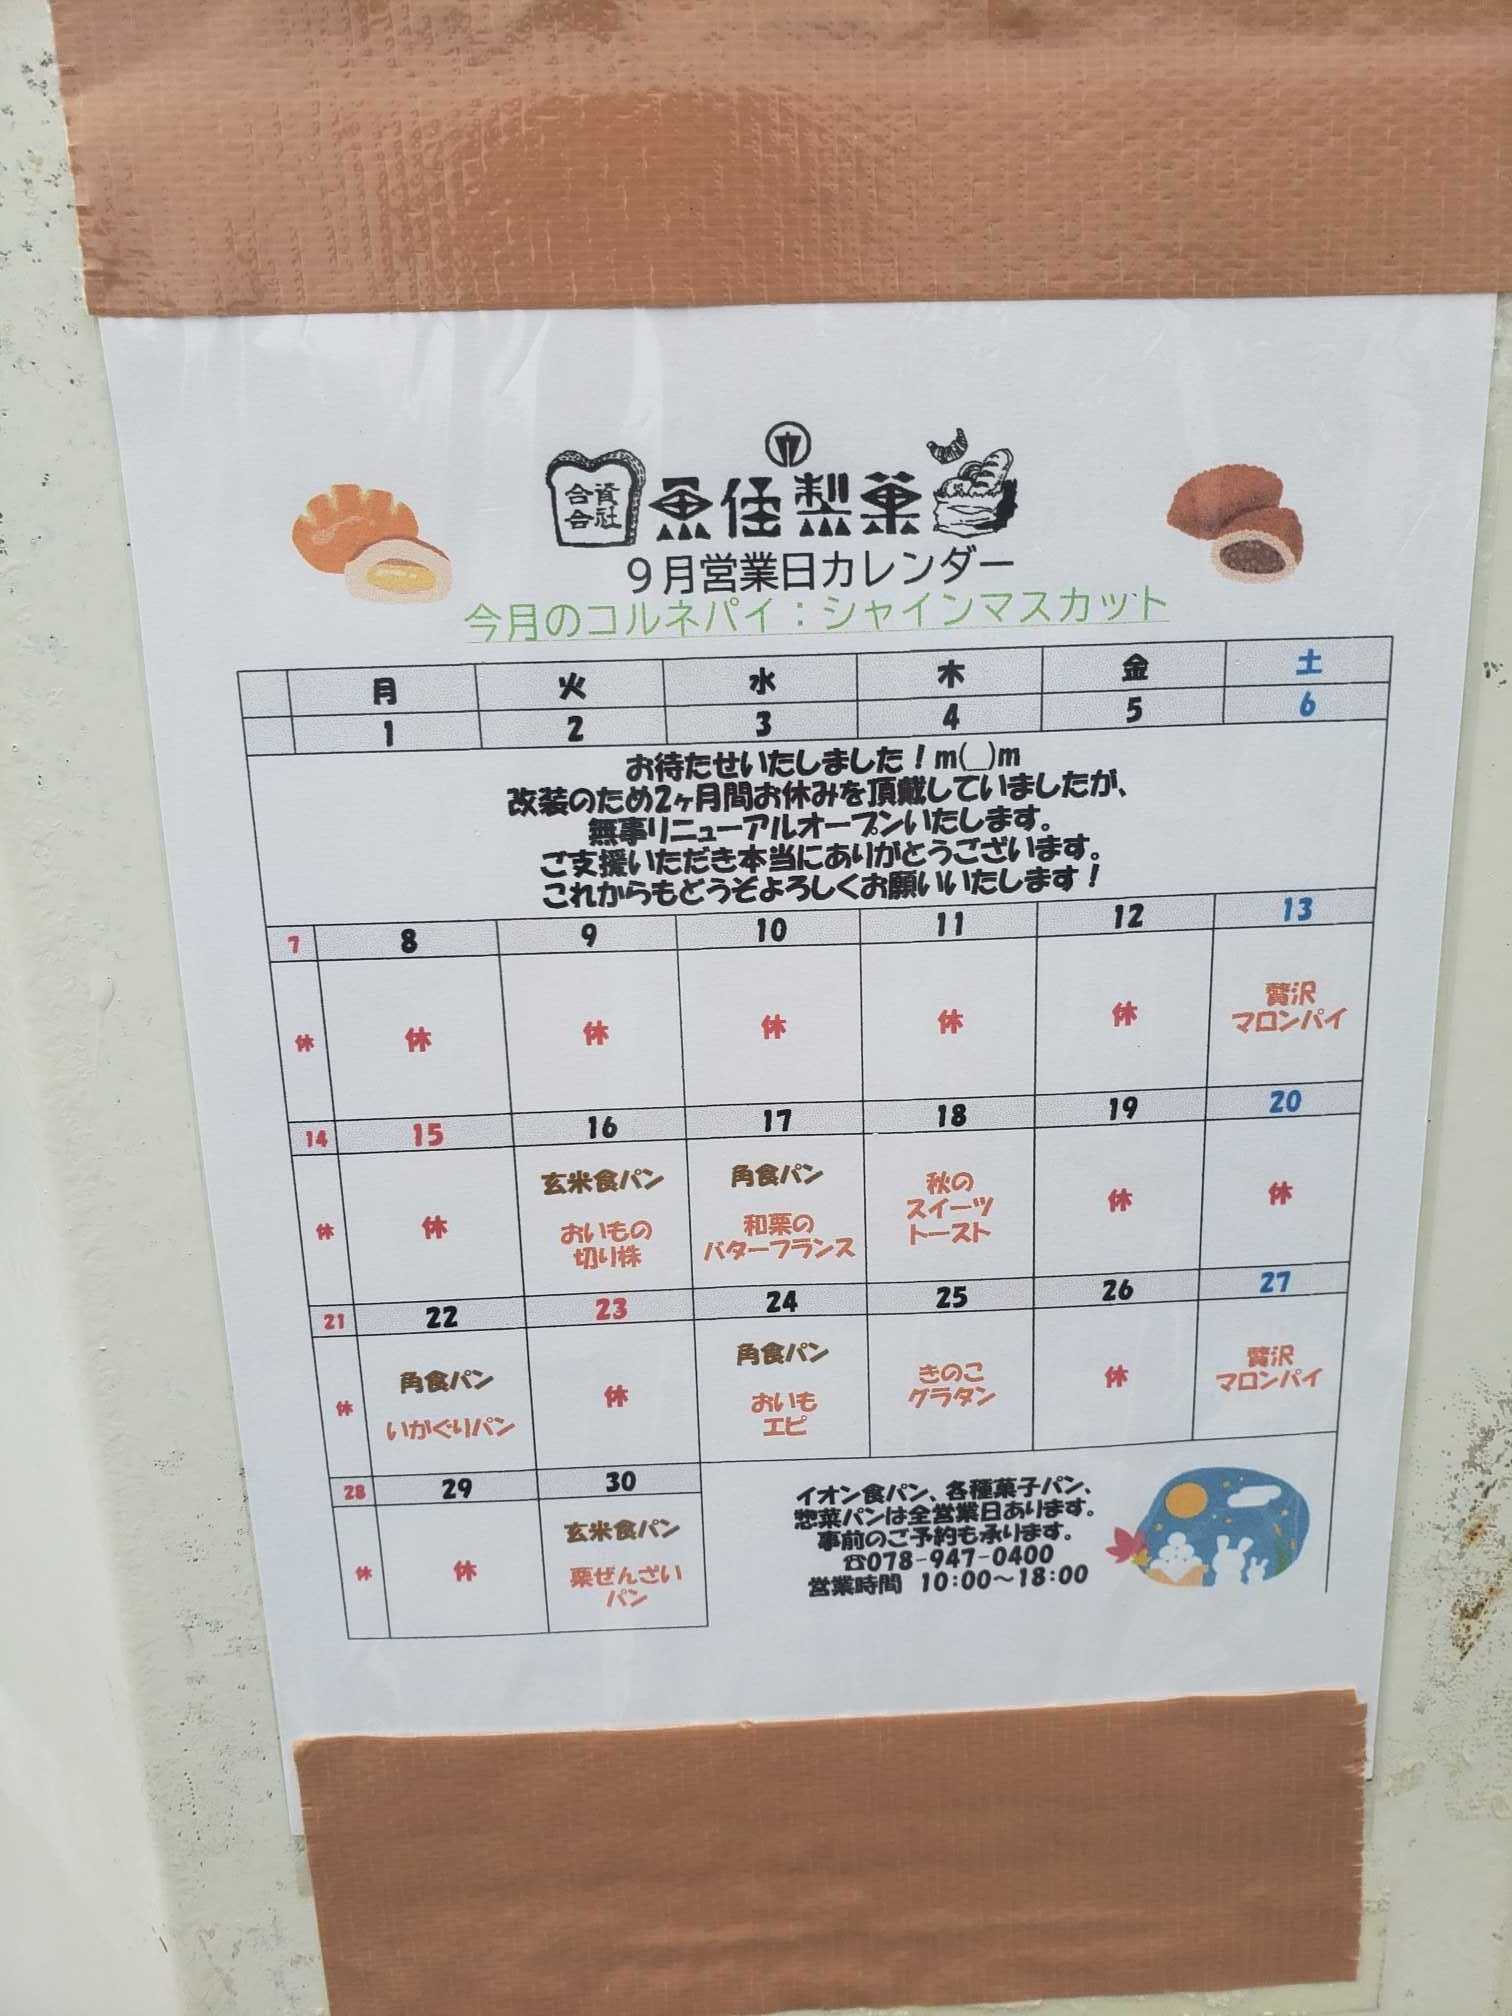 合資
会社
魚住製菓
9月営業日カレンダー
今月のコルネパイ：シャインマスカット
月 火 水 木 金 土
1 2 3 4 5 6
お待たせいたしました！m(_)m
改装のため2ヶ月間お休みを頂戴していましたが、
無事リニューアルオープンいたします。
ご支援いただき本当にありがとうございます。
これからもどうぞよろしくお願いいたします！
7 8 9 10 11 12 13
休 休 休 休 休 休 贅沢
マロンパイ
14 15 16 17 18 19 20
休 休 玄米食パン 角食パン 秋の
スイーツ
トースト 休 休
おいもの
切り株
和栗の
バターフランス
21 22 23 24 25 26 27
休 角食パン 休 角食パン きのこ
グラタン 休 贅沢
マロンパイ
いがぐりパン おいも
エピ
28 29 30
休 休 玄米食パン
栗ぜんざい
パン
イオン食パン、各種菓子パン、
惣菜パンは全営業日あります。
事前のご予約も承ります。
☎078-947-0400
営業時間 10:00～18:00